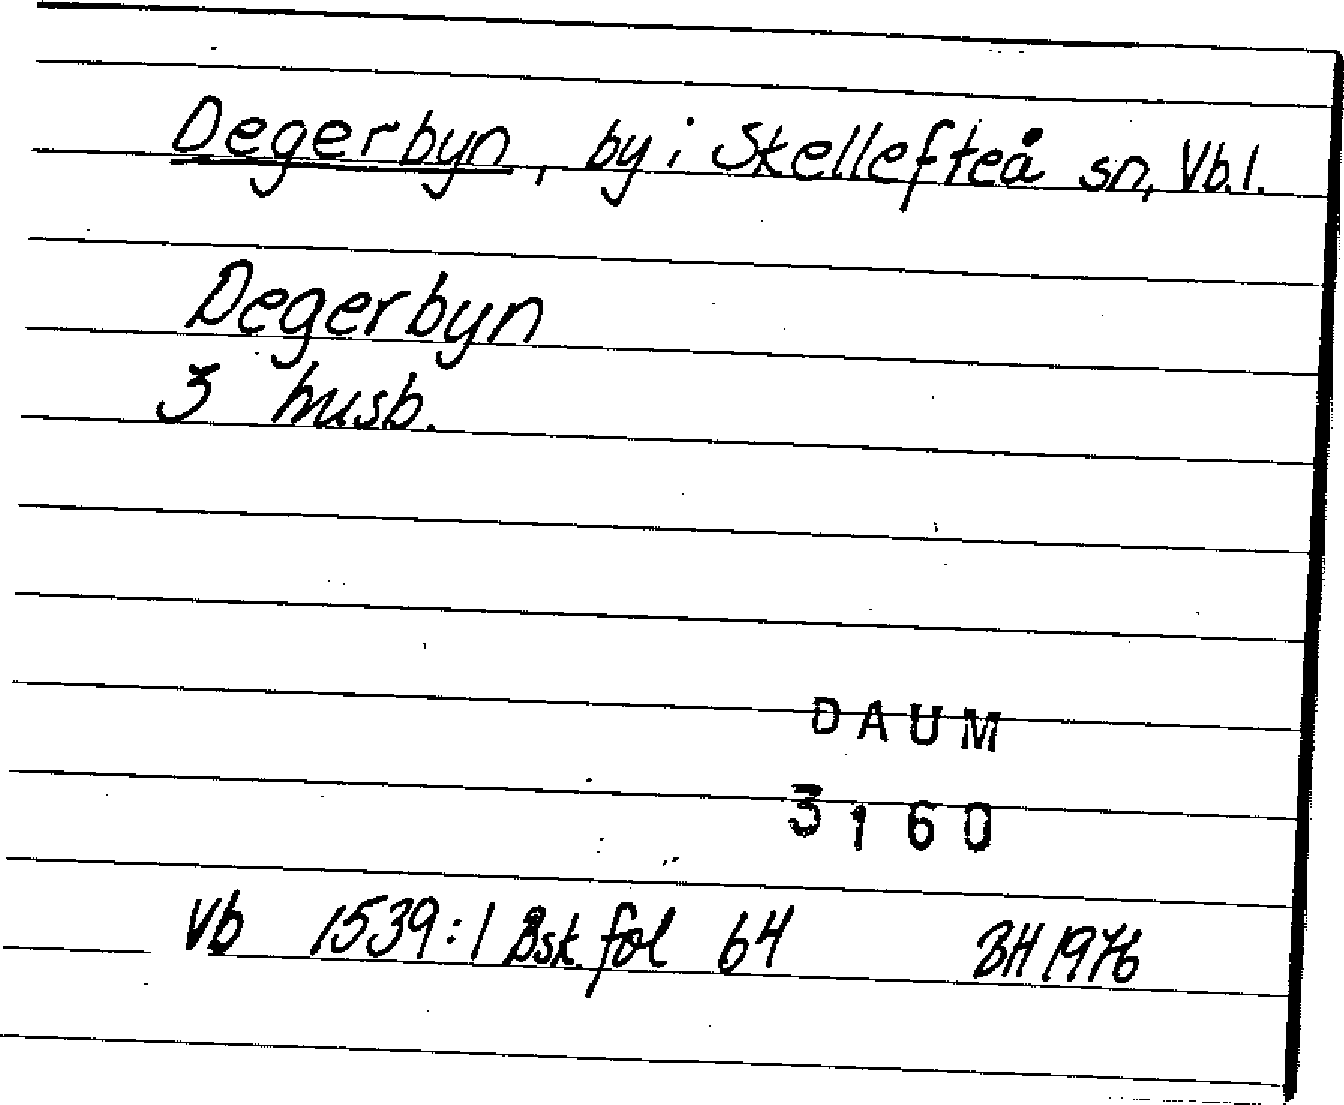 Degerbyn, by i Skellefteå sn, Vb.l.
Degerbyn
3 husb.
DAUM
3160
Vb 1539:1 Åsk. fol 64 BH 1976